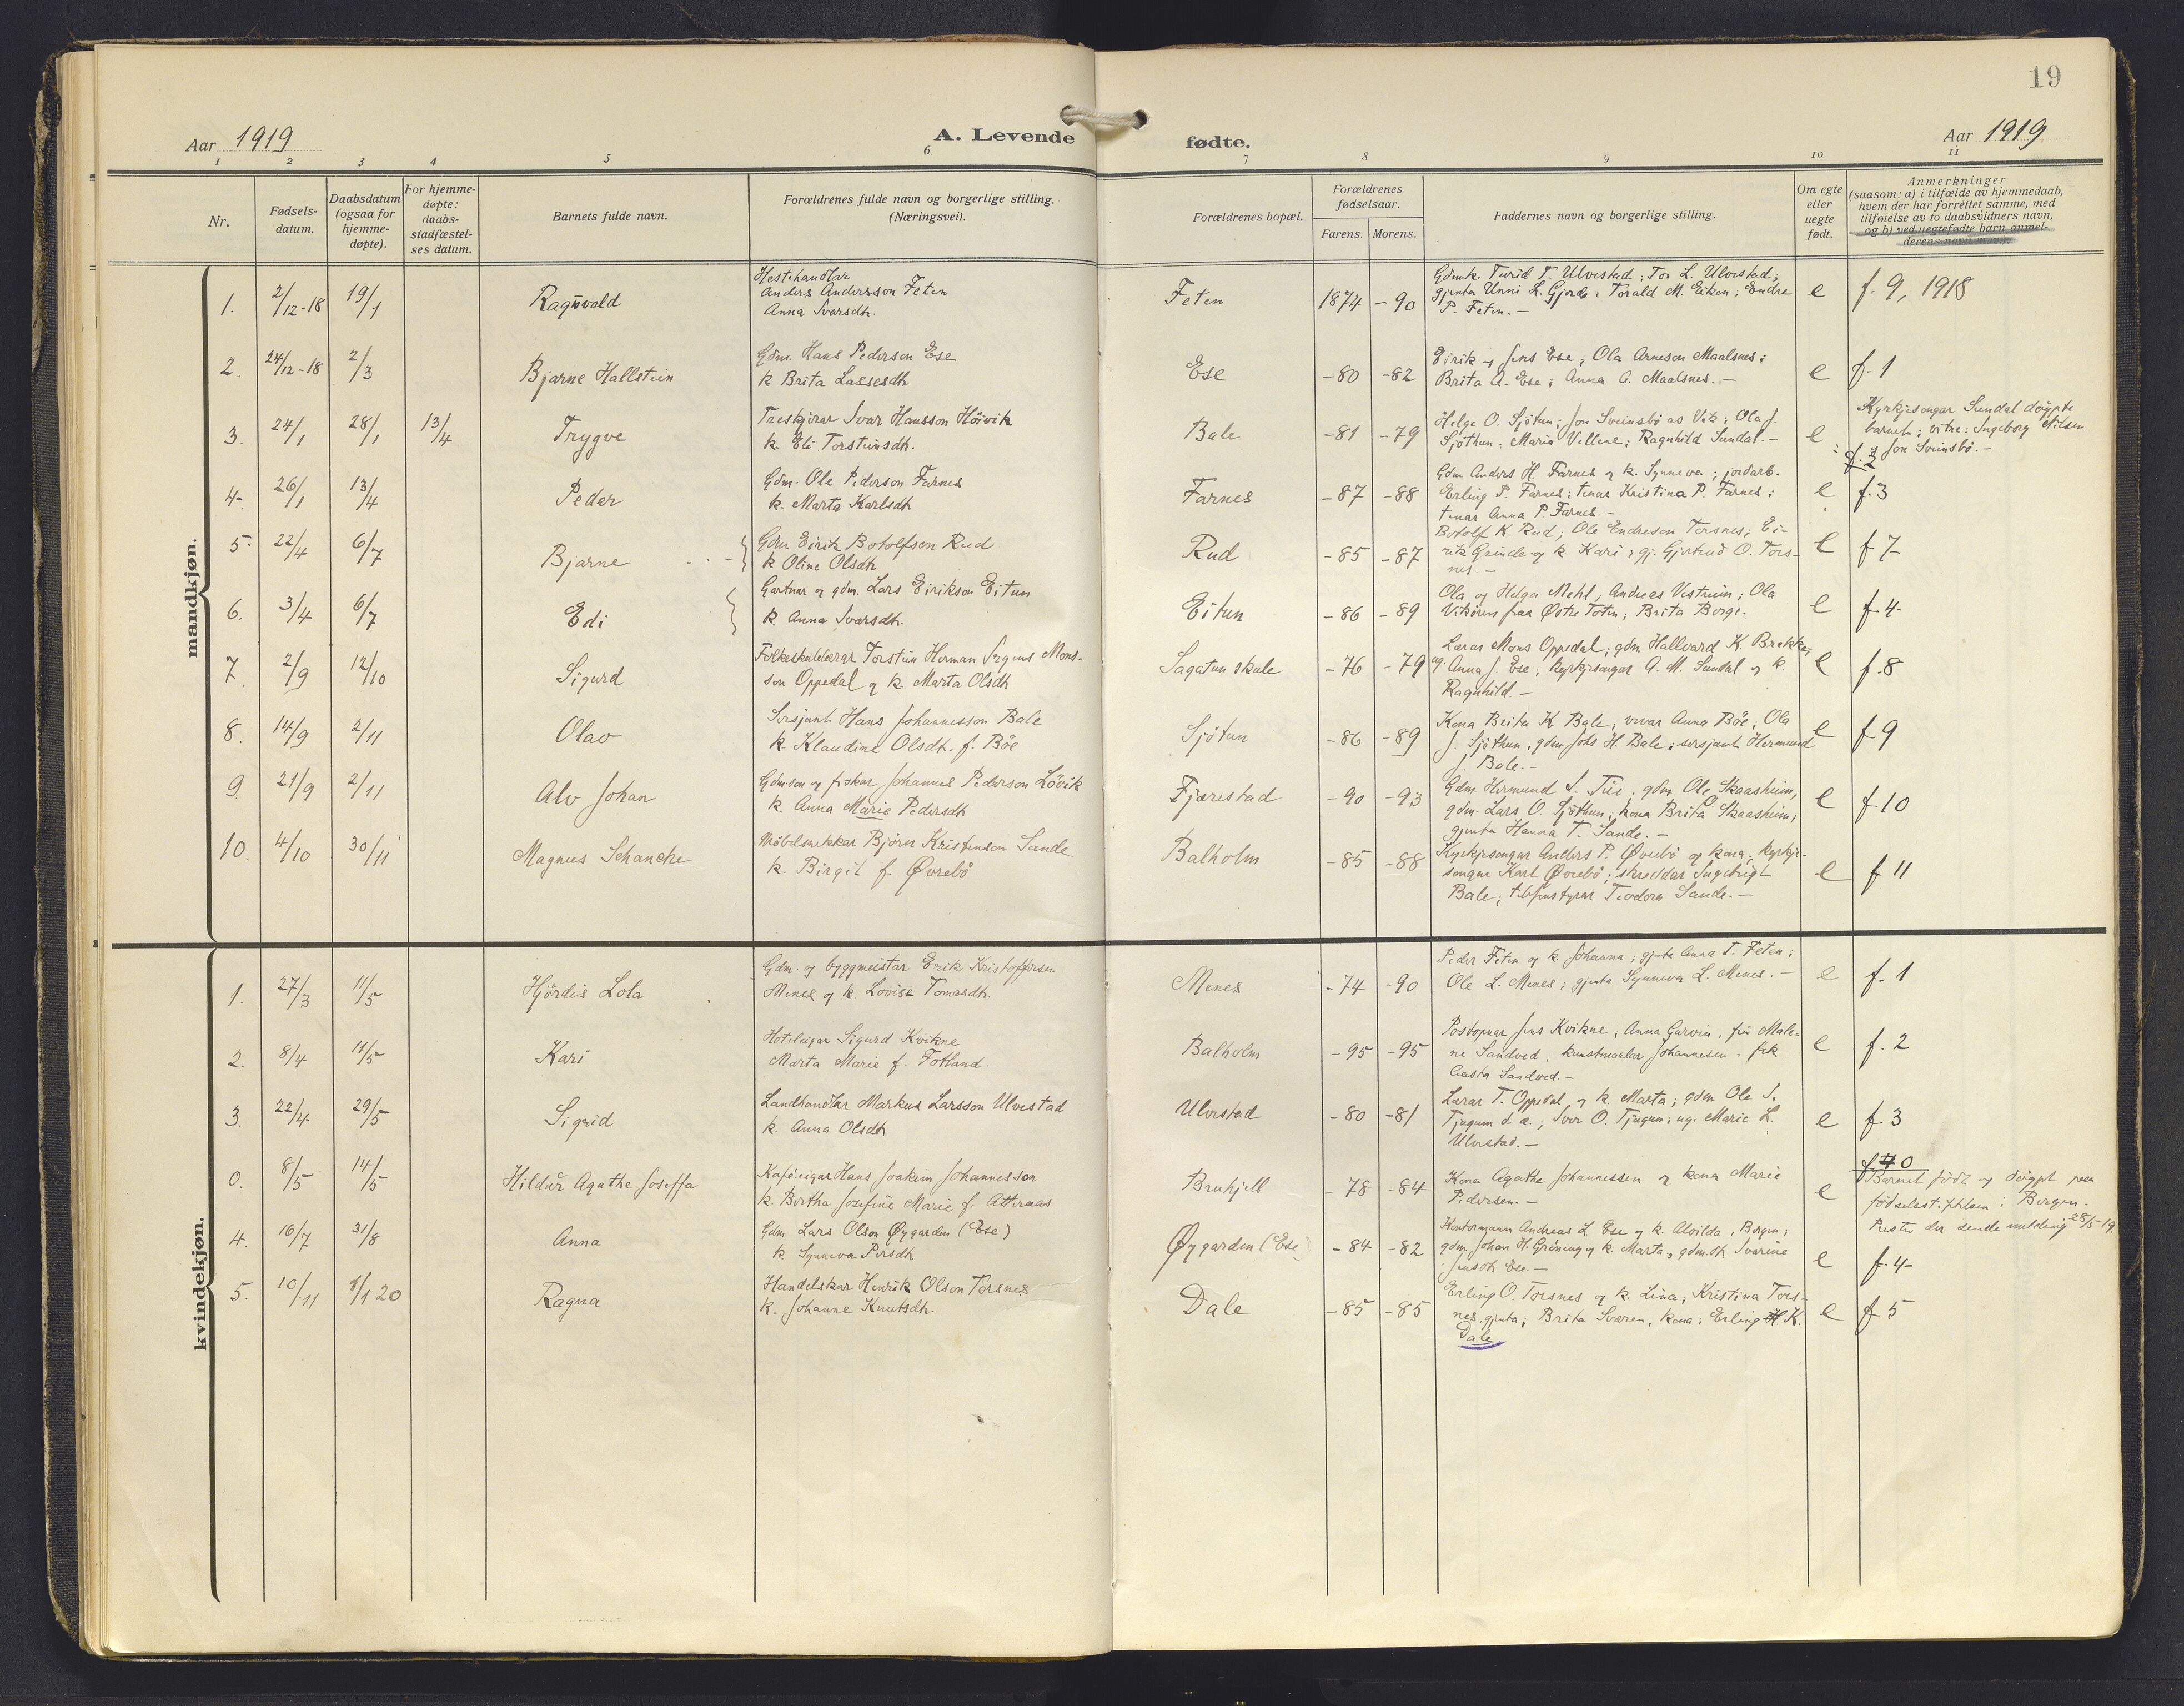 19
Aar 1919
A. Levende
fødte.
Aar 1919
1 2 3 4 5 6 7 8 9 10 11
Nr.
Fødsels-
datum.
Daabsdatum
(ogsaa for
hjemme-
døpte).
For hjemme-
døpte:
daabs-
stadfæstel-
ses datum.
Barnets fulde navn.
Forældrenes fulde navn og borgerlige stilling.
(Næringsvei).
Forældrenes bopæl.
Forældrenes
fødselsaar.
Farens. Morens.
Faddernes navn og borgerlige stilling.
Om egte
eller
uegte
født.
Anmerkninger
(saasom: a) i tilfælde av hjemmedaab,
hvem der har forrettet samme, med
tilføielse av to daabsvidners navn,
og b) ved uegtefødte barn anmel-
derens navn m. v.).
mandkjøn.
1. 2/12-18 19/1 Ragnvald
Hestehandlar
Anders Andersson Feten
Anna Ivarsdtr.
Feten 1874 -90
Gdmk. Turid T. Ulvestad; Tor L. Ulvestad;
gjenta Unni L. Gjerde; Torald M. Eiken; Endre
P. Feten. -
e f. 9, 1918
2. 24/12-18 2/3 Bjarne Hallstein
Gdm. Hans Pederson Ese
k Brita Lassesdtr
Ese -80 -82
Eirik og Jens Ese, Ola Arneson Maalsnes;
Brita A. Ese; Anna A. Maalsnes. -
e f. 1
3. 24/1 28/1 13/4 Trygve
Treskjerar Ivar Hansson Höivik
k. Eli Torsteinsdtr.
Bale -81 -79
Helge O. Sjötun; Jon Sveinsbö av Vik; Ola J.
Sjöthun; Marie Villene; Ragnhild Sundal. -
e
Kyrkjesongar Sundal döypte
barnet; vitne: Ingeborg Nilsen
og Jon Sveinsbö. -
f. 2
4. 26/1 13/4 Peder
Gdm. Ole Pederson Farnes
k. Marta Karlsdtr
Farnes -87 -88
Gdm Anders H. Farnes og k. Synneva; jordarb.
Erling P. Farnes; tenar Kristina P. Farnes;
tenar Anna P Farnes. -
e f. 3
5. 22/4 6/7 Bjarne
Gdm Eirik Botolfson Rud
k Oline Olsdtr
Rud -85 -87
Botolf K. Rud; Ole Endreson Torsnes; Ei-
rik Grinde og k. Kari; gj. Gjertrud O. Tors-
nes. -
e f 7
6. 3/4 6/7 Edi
Gartnar og gdm. Lars Eirikson Eitun
k. Anna Ivarsdtr.
Eitun -86 -89
Ola og Helga Mehl, Andreas Vestreim; Ola
Vikören fraa Østre Toten, Brita Borge.
e f. 4
7. 2/9 12/10 Sigurd
Folkeskulelærar Torstein Herman Mons-
son Oppedal og k. Marta Olsdtr
Sagatun skule -76 -79
Lærar Mons Oppedal; gdm. Hallvard K. Brekke;
ug. Anna J. Ese; kyrkjesongar A. M. Sundal og k.
Ragnhild. -
e f. 8
8. 14/9 2/11 Olav
Sersjant Hans Johannesson Bale
k. Klaudine Olsdtr. f. Böe
Sjötun -86 -89
Kona Brita K. Bale, vevar Anna Böe; Ola
J. Sjöthun; gdm. Johs H. Bale; sersjant Hermund
J. Bale. -
e f 9
9 21/9 2/11 Alv Johan
Gdmson og fiskar Johannes Pederson Lövik
k. Anna Marie Pedersdtr
Fjærestad -90 -93
Gdm. Hermund S. Tue; gdm. Ole Skaasheim,
gdm. Lars O. Sjöthun; kona Brita O. Skaasheim;
gjenta Hanna T. Sande. -
e f 10
10. 4/10 30/11 Magnus Schancke
Möbelsnekkar Bjørn Kristenson Sande
k. Birgit f. Øvrebö
Balholm -85 -88
Kyrkjesongar Anders P. Øvrebö og kona; kyrkje-
songar Karl Øvrebö; skreddar Ingebrigt
Bale; telefonstyrar Teodora Sande. -
e f 11
kvindekjøn.
1. 27/3 11/5 Hjördis Lola
Gdm. og byggmeistar Erik Kristoffersen
Menes og k. Lovise Tomasdtr.
Menes -74 -90
Peder Feten og k Johanna; gjenta Anna T. Feten;
Ole L. Menes; gjenta Synneva L. Menes. -
e f. 1
2. 8/4 11/5 Kari
Hoteleigar Sigurd Kvikne
Marta Marie f. Fotland.
Balholm -95 -95
Postopnar Jens Kvikne, Anna Garvin, fru Male-
ne Sandved, kunstmaaler Johannesen, frk
Aasta Sandved. -
e f. 2
3. 22/4 29/5 Sigrid
Landhandlar Markus Larsson Ulvestad
k. Anna Olsdtr
Ulvestad -80 -81
Lærar T. Oppedal og k. Marta; gdm Ole S.
Tjugum d. æ.; Iver O. Tjugum; ug. Marie L.
Ulvestad. -
e f. 3
0. 8/5 14/5 Hildur Agathe Joseffa
Kaféeigar Hans Joakim Johannessen
k. Bertha Josefine Marie f. Atteraas
-78 -84
Kona Agathe Johannessen og kona Marie
Pedersen. -
e f 0
Barnet född og döypt paa
födselsstiftelsen i Bergen.
Presten der sende melding 28/5-19
4. 16/7 31/8 Anna
Gdm. Lars Olson Øygarden (Ese)
k Synneva Persdtr
Øygarden (Ese) -84 -82
Kontormann Andreas L Ese og k. Alvilda, Bergen;
gdm. Johan H. Gröning og k. Marta, gdm.dt. Ivarine
Jensdtr Ese. -
e f. 4
5. 10/11 1/1 20 Ragna
Handelskar Henrik Olson Torsnes
k. Johanne Knutsdtr.
Dale -85 -85
Erling O. Torsnes og k. Lina; Kristina Tors-
nes, gjenta; Brita Sværen, kona; Erling K.
Dale
e f 5